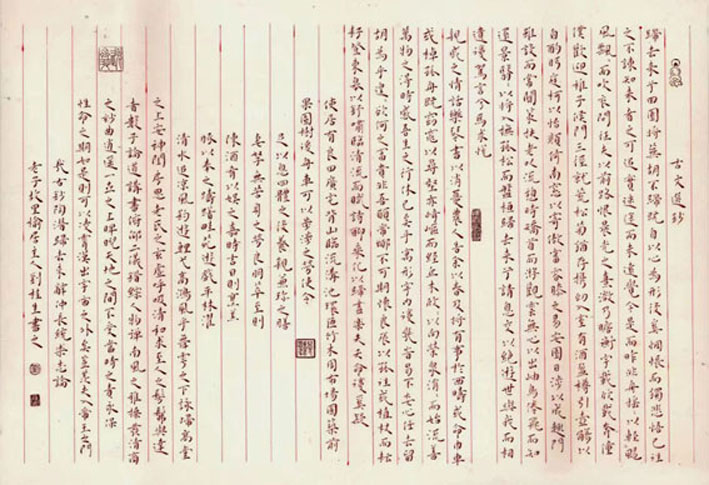 古文選鈔
歸去來兮田園將蕪胡不歸既自以心為形役奚惆悵而獨悲悟已往
之不諫知來者之可追實迷途而未遠覺今是而昨非舟搖々以輕颺
風飄々而吹衣問征夫以前路恨晨光之熹微乃瞻衡宇載欣載奔僮
僕歡迎稚子候門三徑就荒松菊猶存攜幼入室有酒盈樽引壺觴以
自酌眄庭柯以怡顏倚南窗以寄傲審容膝之易安園日涉以成趣門
雖設而常關策扶老以流憩時矯首而遐觀雲無心以出岫鳥倦飛而知
還景翳々以將入撫孤松而盤桓歸去來兮請息交以絕遊世與我而相
遺復駕言兮焉求悅
親戚之情話樂琴書以消憂農人告余以春及將有事於西疇或命巾車
或棹孤舟既窈窕以尋壑亦崎嶇而經丘木欣欣以向榮泉涓涓而始流善
萬物之得時感吾生之行休已矣乎寓形宇內復幾時曷不委心任去留
胡為乎遑遑欲何之富貴非吾願帝鄉不可期懷良辰以孤往或植杖而耘
耔登東皋以舒嘯臨清流而賦詩聊乘化以歸盡樂夫天命復奚疑
使居有良田廣宅背山臨流溝池環匝竹木周布場圃築前
果園樹後舟車可以步涉之勞使令
足以息四體之役養親兼珍之膳
妻孥無苦身之勞良朋萃止則
陳酒肴以娛之嘉時吉日則烹羔
豚以奉之躊躇畦苑遊戲平林濯
清水追涼風釣遊鯉弋高鴻風乎舞雩之下詠歸高堂
之上安神閨房思老氏之玄虛呼吸精和求至人之彷彿與達
者數子論道講書俯仰二儀錯綜人物彈南風之雅操發清商
之妙曲逍遙一世之上睥睨天地之間不受當時之責永保
性命之期如是則可以凌霄漢出宇宙之外矣豈羨夫入帝王之門
陶潛歸去來辭仲長統樂志論
老子故里居主人劉桂生書之